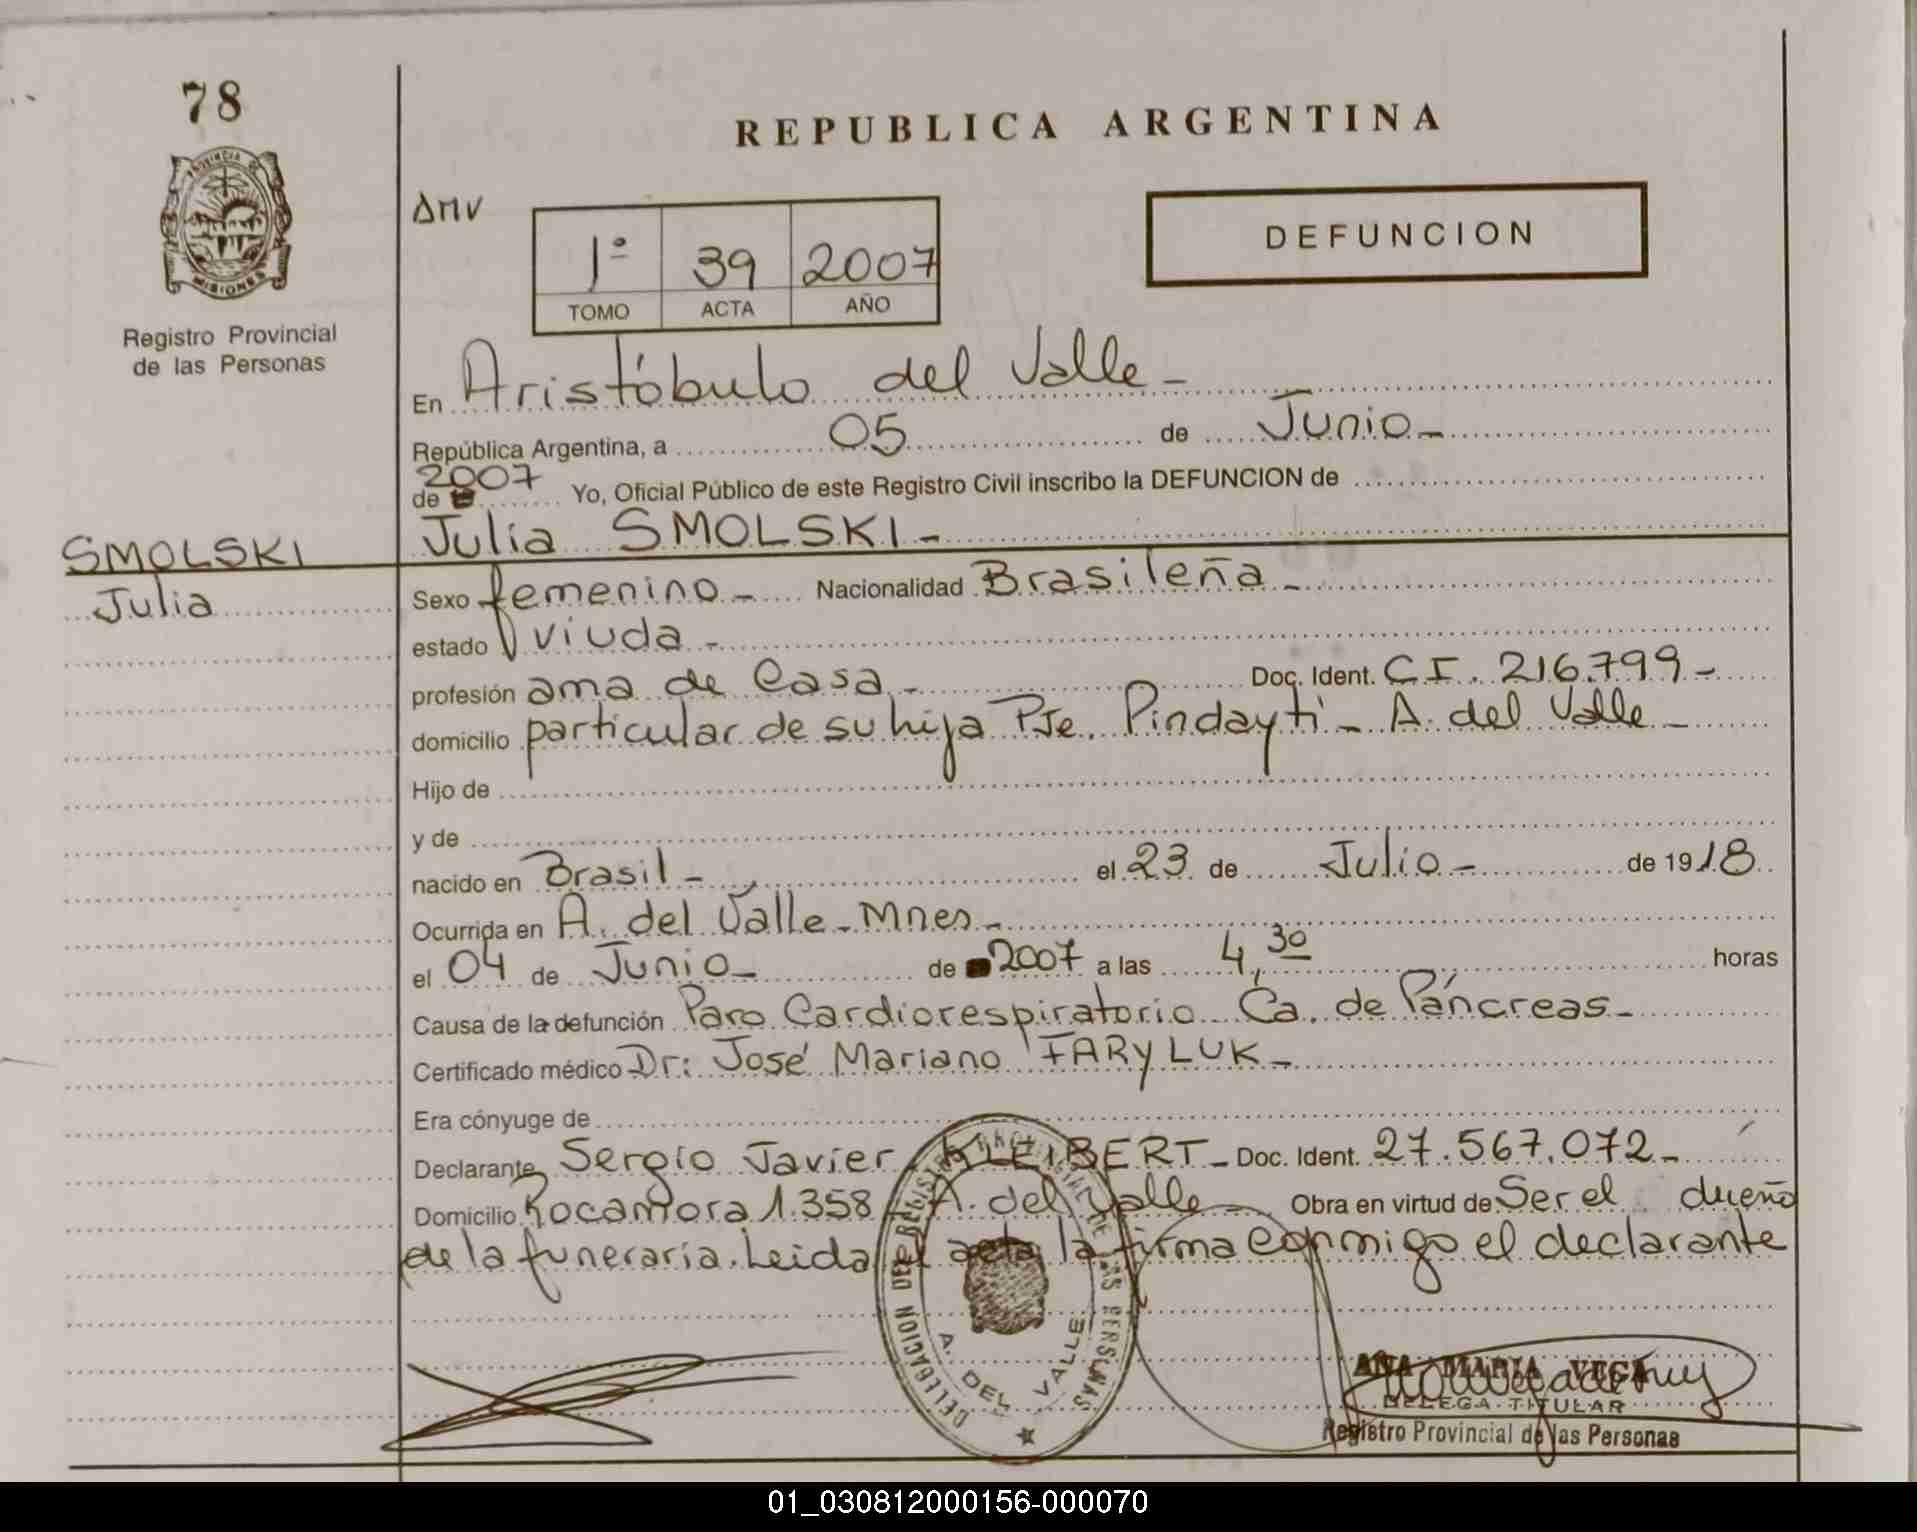 78
PROVINCIA DE
MISIONES
Registro Provincial
de las Personas
REPUBLICA ARGENTINA
AMV
1º 39 2007
TOMO ACTA AÑO
DEFUNCION
En Aristóbulo del Valle -
República Argentina, a 05 de Junio -
2007
de Yo, Oficial Público de este Registro Civil inscribo la DEFUNCION de
Julia SMOLSKI -
SMOLSKI
Julia
Sexo femenino - Nacionalidad Brasileña -
estado viuda -
profesión ama de Casa - Doc. Ident. C.I. 216.799 -
domicilio particular de su hija Pje. Pindayti - A. del Valle -
Hijo de
y de
nacido en Brasil - el 23 de Julio - de 1918
Ocurrida en A. del Valle - Mnes -
el 04 de Junio - de 2007 a las 4,30 horas
Causa de la defunción Paro Cardiorespiratorio Ca. de Páncreas -
Certificado médico Dr: José Mariano FARYLUK -
Era cónyuge de
Declarante Sergio Javier KLEIBERT - Doc. Ident. 27.567.072 -
Domicilio Rocamora 1358 - A. del Valle - Obra en virtud de Ser el dueño
de la funeraria. Leida el acta la firma conmigo el declarante
DELEGACION DEL REGISTRO PROVINCIAL DE LAS PERSONAS
A. DEL VALLE
ANA MARIA VEGA
DELEGA. TITULAR
Registro Provincial de las Personas
01_030812000156-000070